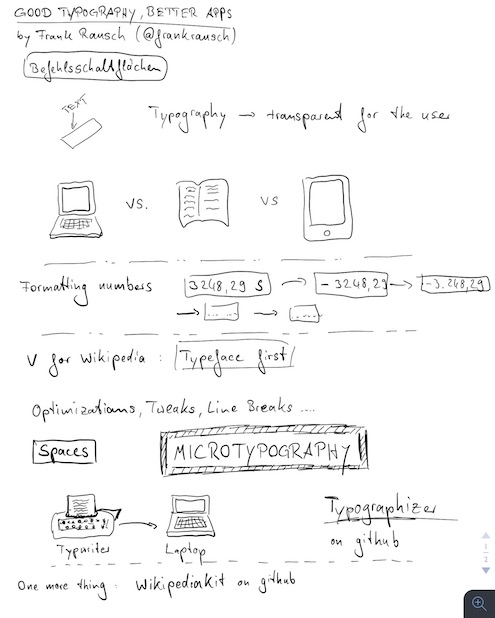 GOOD TYPOGRAPHY, BETTER APPS
by Frank Rausch (@frankrausch)
Befehlsschaltflächen
TEXT
Typography → transparent for the user
VS.
VS
Formatting numbers 3248,29 $ → - 3248,29 → -3.248,29
→ ..... → .....
V for Wikipedia : Typeface first
Optimizations, Tweaks, Line Breaks ....
Spaces MICROTYPOGRAPHY
Typwriter Laptop
Typographizer
on github
One more thing : WikipediaKit on github
1
2